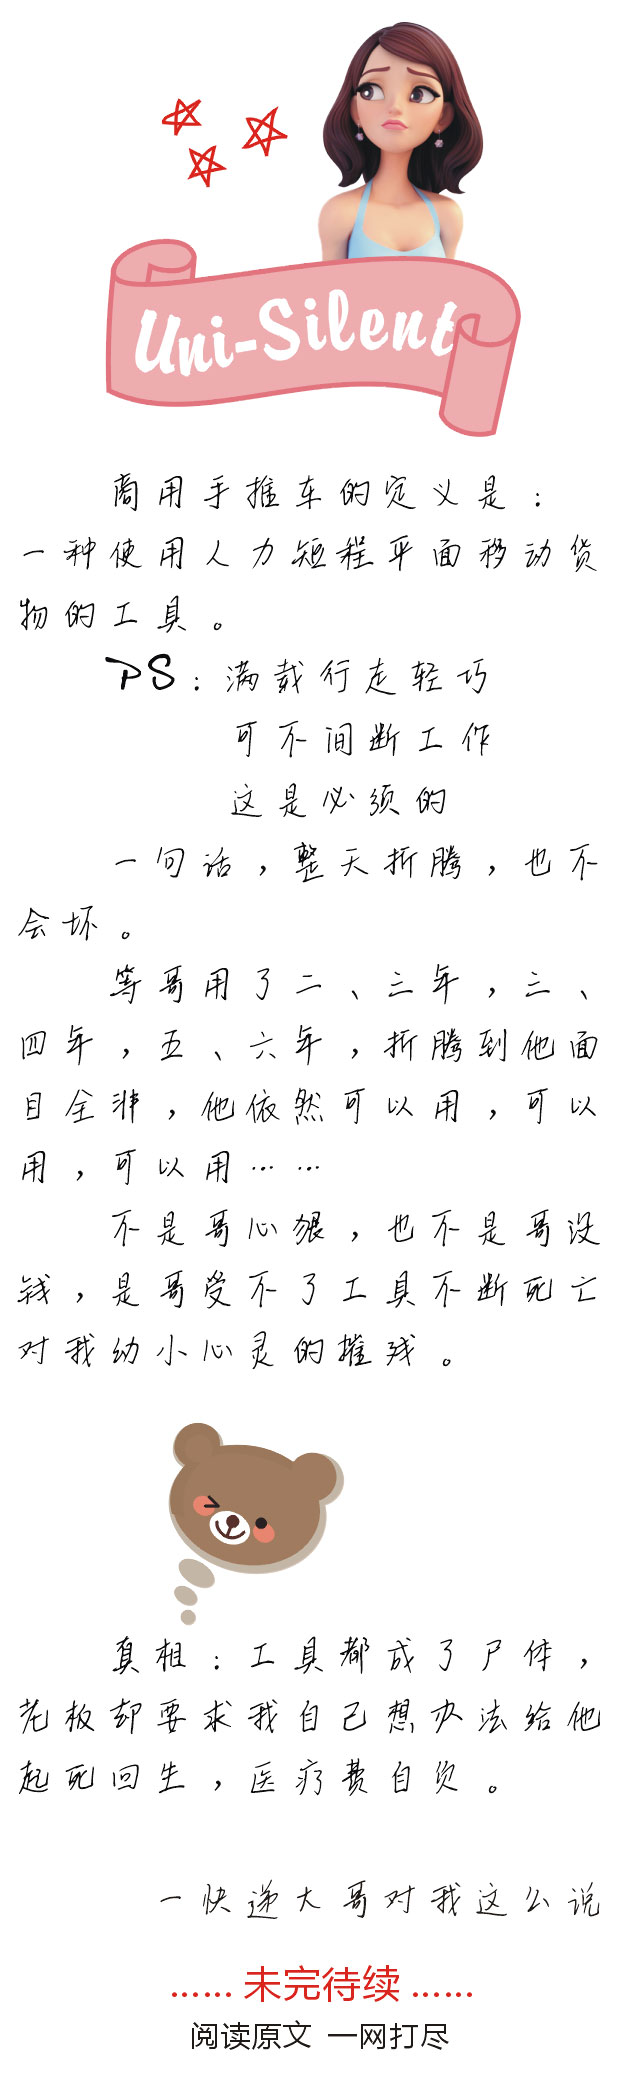 Uni-Silent
商用手推车的定义是：
一种使用人力短程平面移动货
物的工具。
PS：满载行走轻巧
可不间断工作
这是必须的
一句话，整天折腾，也不
会坏。
等哥用了二、三年，三、
四年，五、六年，折腾到他面
目全非，他依然可以用，可以
用，可以用……
不是哥心狠，也不是哥没
钱，是哥受不了工具不断死亡
对我幼小心灵的摧残。
真相：工具都成了尸体，
老板却要求我自己想办法给他
起死回生，医疗费自负。
一快递大哥对我这么说
……未完待续……
阅读原文 一网打尽